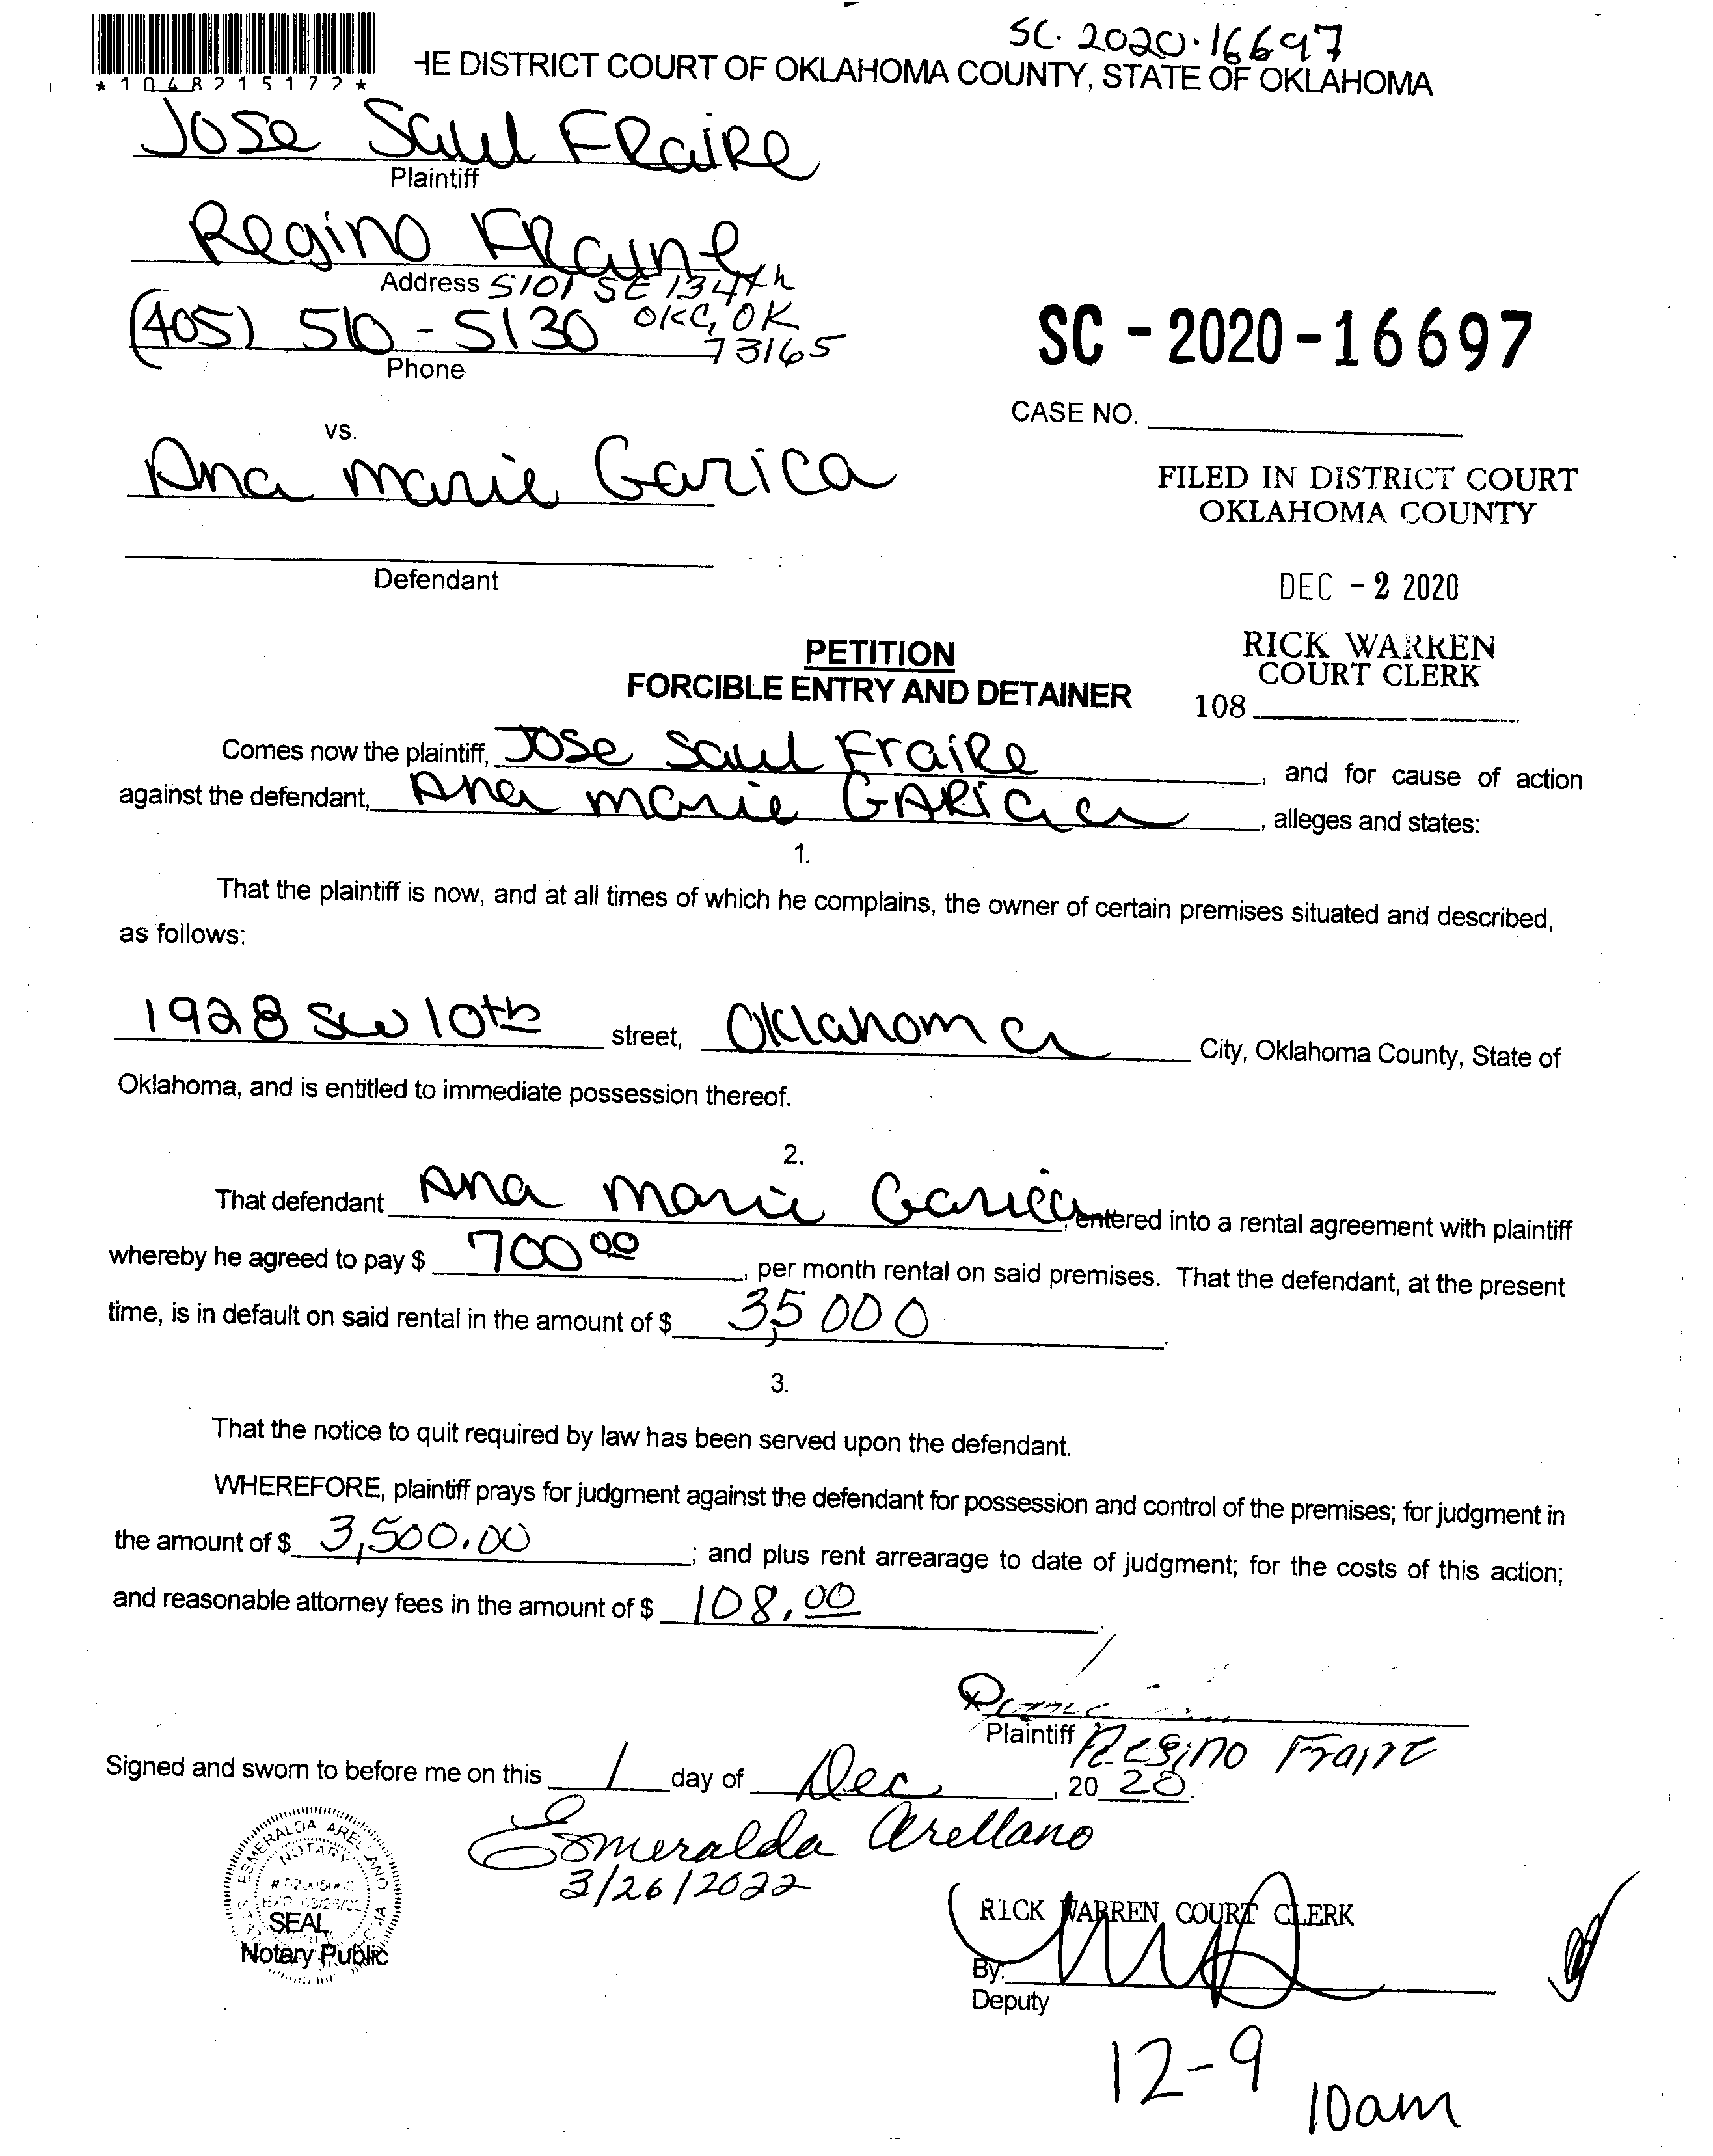 SC. 2020. 16697
HE DISTRICT COURT OF OKLAHOMA COUNTY, STATE OF OKLAHOMA
* 1 0 4 8 2 1 5 1 7 2 *
Jose Saul FRaiRe
Plaintiff
Regino FRaire
Address 5101 SE 134th
OKC, OK
(405) 510-5130
73165
Phone
SC - 2020 - 16697
CASE NO.
vs.
Ana Marie Garica
FILED IN DISTRICT COURT
OKLAHOMA COUNTY
Defendant
DEC - 2 2020
PETITION
FORCIBLE ENTRY AND DETAINER
RICK WARREN
COURT CLERK
108
Comes now the plaintiff, Jose Saul FraiRe, and for cause of action
against the defendant, Ana Marie GARica, alleges and states:
1.
That the plaintiff is now, and at all times of which he complains, the owner of certain premises situated and described,
as follows:
1928 SW 10th street, Oklahoma City, Oklahoma County, State of
Oklahoma, and is entitled to immediate possession thereof.
2.
That defendant Ana Marie Garica, entered into a rental agreement with plaintiff
whereby he agreed to pay $ 700 00, per month rental on said premises. That the defendant, at the present
time, is in default on said rental in the amount of $ 35,000.
3.
That the notice to quit required by law has been served upon the defendant.
WHEREFORE, plaintiff prays for judgment against the defendant for possession and control of the premises; for judgment in
the amount of $ 3,500.00; and plus rent arrearage to date of judgment; for the costs of this action;
and reasonable attorney fees in the amount of $ 108.00.
x
Plaintiff Regino Fraire
Signed and sworn to before me on this 1 day of Dec, 20 20.
Esmeralda Arellano
3/26/2022
ESMERALDA ARELLANO
NOTARY
SEAL
Notary Public
RICK WARREN COURT CLERK
By:
Deputy
12-9
10am